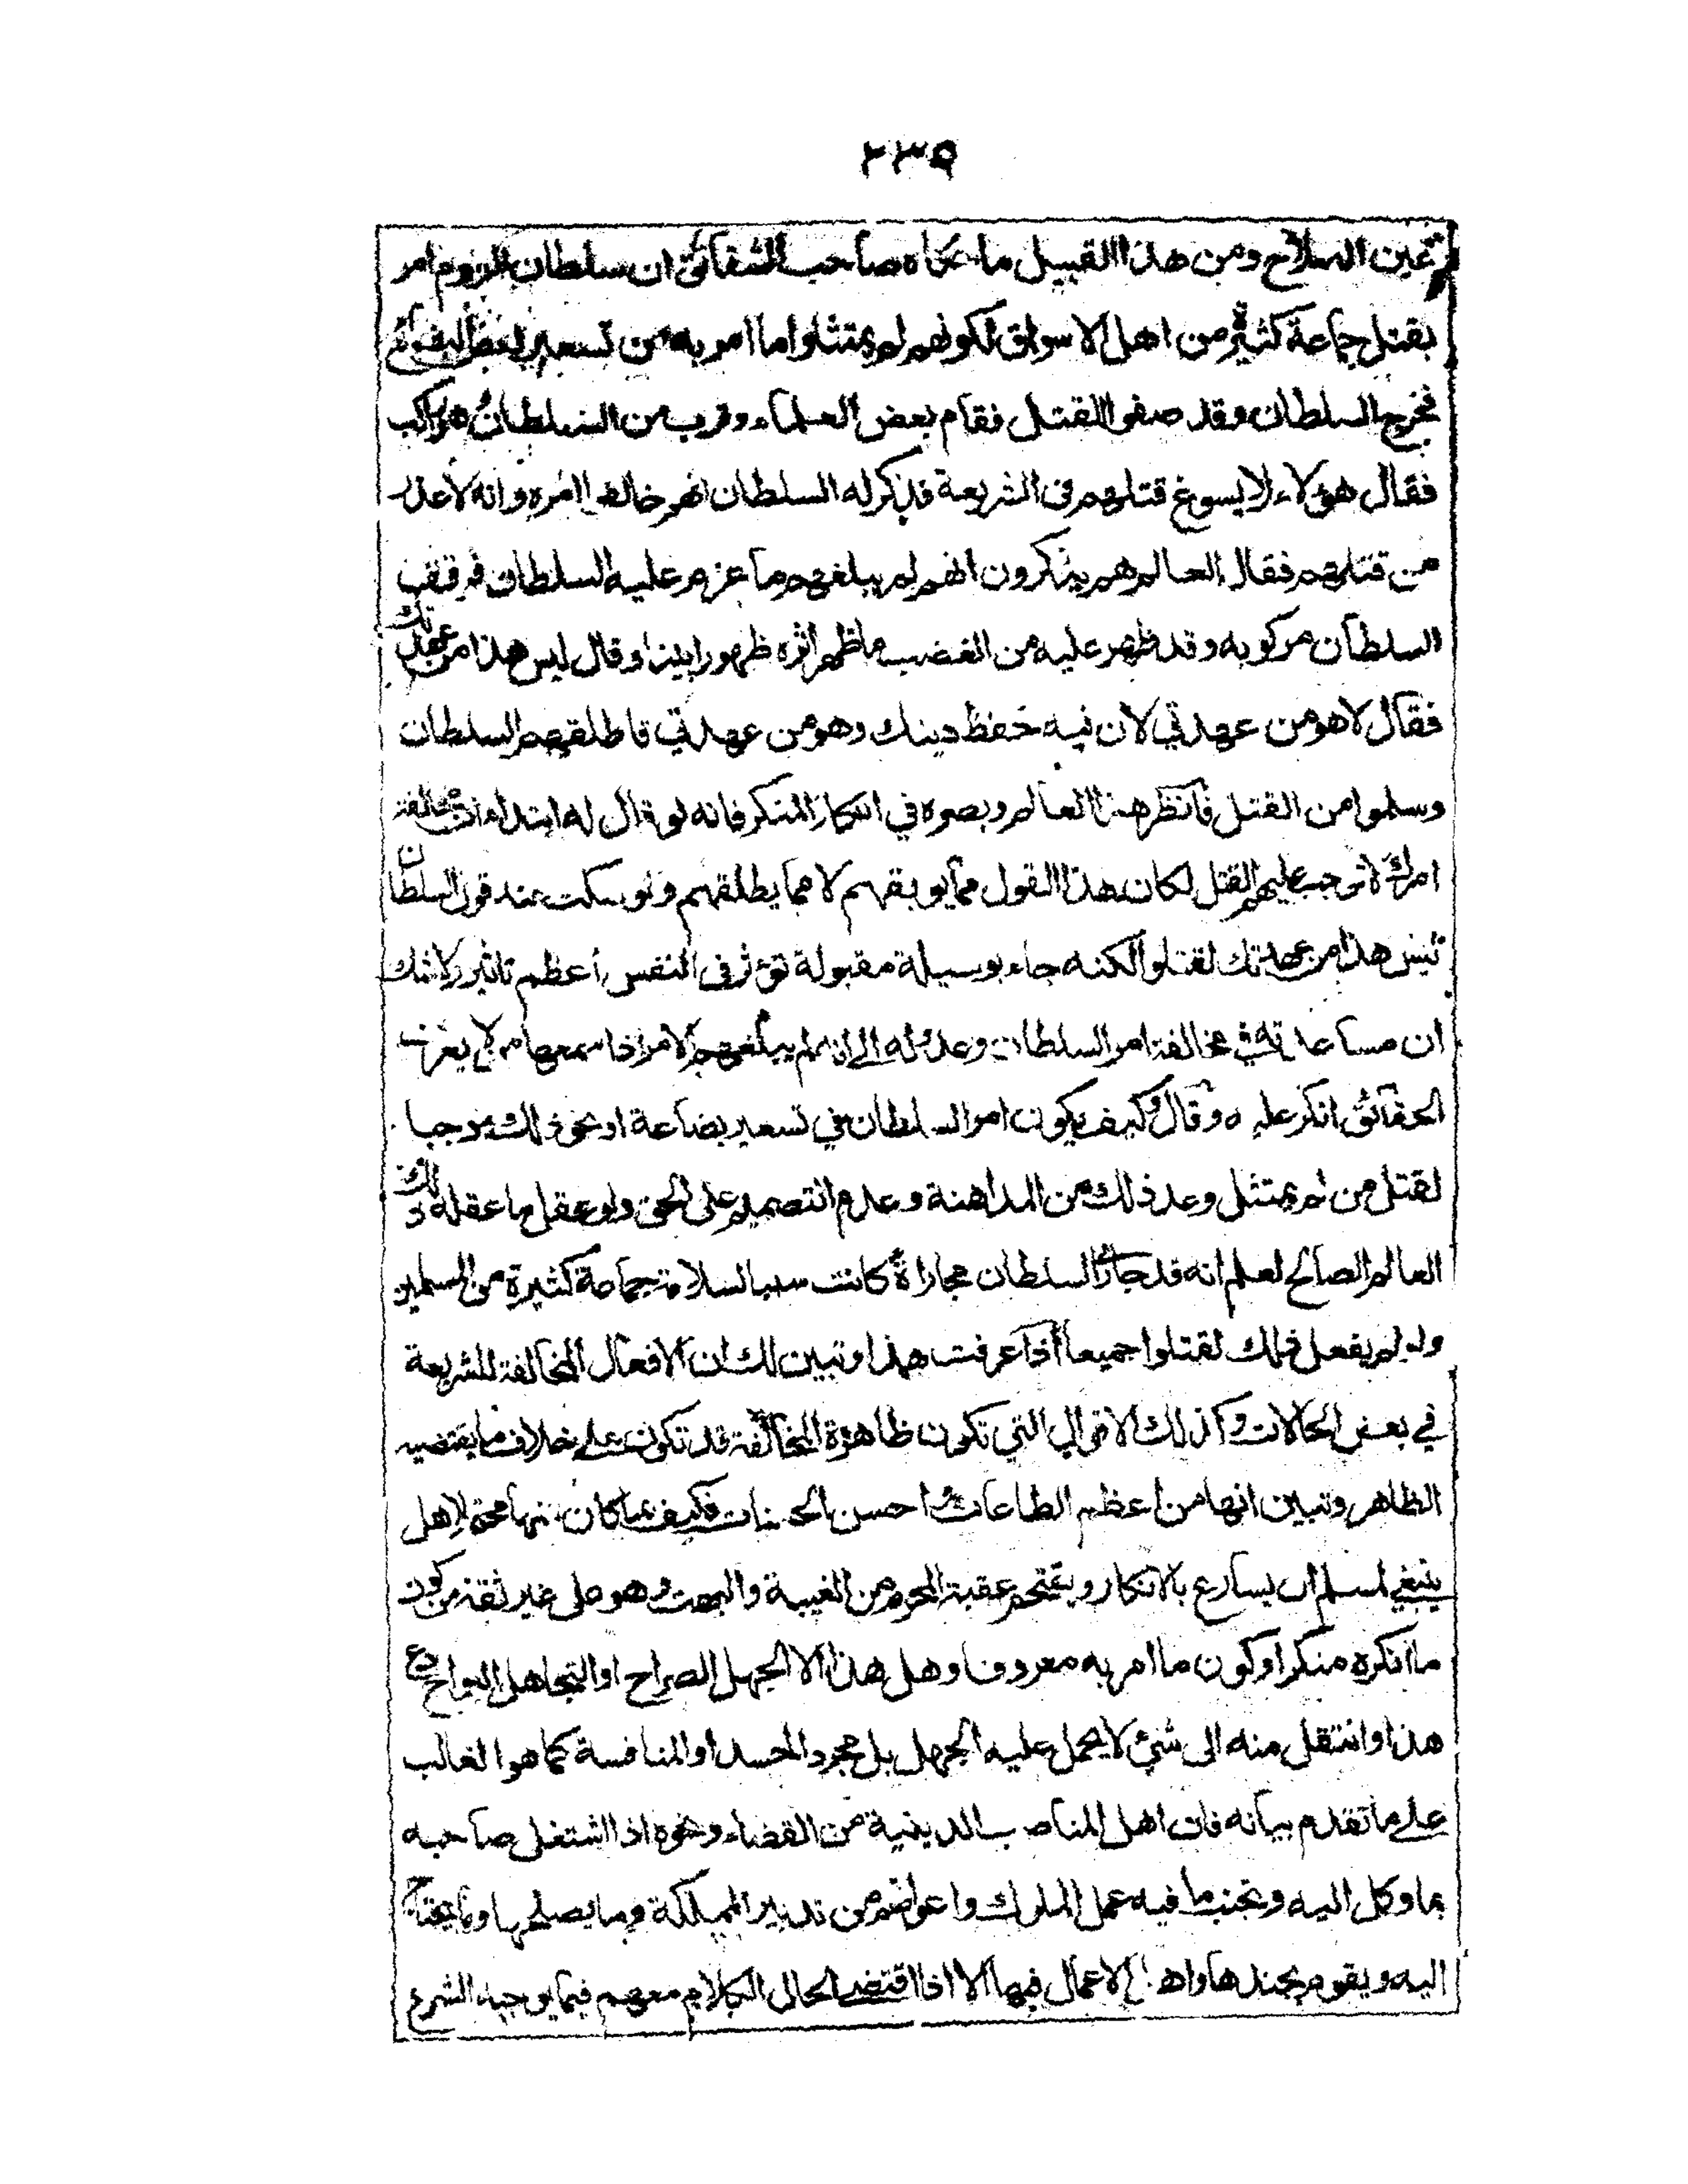 ٢٣٩
عين الصلاح ومن هذا القبيل ما حكاه صاحب الشقائق ان سلطان الروم امر
بقتل جماعة كثيرة من اهل الاسواق لكونهم لم يمتثلوا ما امر به من تسعير بعض البضائع
فخرج السلطان وقد صفوا للقتل فقام بعض العلماء وقرب من السلطان وهو راكب
فقال هؤلاء لا يسوغ قتلهم في الشريعة فذكر له السلطان انهم خالفوا امره وانه لا عذر
من قتلهم فقال العالم هم يذكرون انهم لم يبلغهم ما عزم عليه السلطان فوقف
السلطان مركوبه وقد ظهر عليه من الغضب ما ظهر اثره ظهورا بينا وقال ليس هذا من عهدتك
فقال لا هو من عهدتي لان فيه حفظ دينك وهو من عهدتي فاطلقهم السلطان
وسلموا من القتل فانظر هذا العالم وبصره في انكار المنكر فانه لو قال له ابتداء ان مخالفة
امرك لا توجب عليهم القتل لكان هذا القول مما يوبقهم لا مما يطلقهم ولو سكت عند قول السلطان
ليس هذا من عهدتك لقتلوا لكنه جاء بوسيلة مقبولة تؤثر في النفس أعظم تاثير ولا شك
ان مساعدته في مخالفة امر السلطان وعدوله الى انه لم يبلغهم الامر اذا سمعها من لا يعرف
الحقائق انكر عليه وقال وكيف يكون امر السلطان في تسعير بضاعة او نحو ذلك موجبا
لقتل من لم يمتثل وعد ذلك من المداهنة وعدم التصميم على الحق ولو عقل ما عقله ذلك
العالم الصالح لعلم انه قد جارا السلطان مجاراة كانت سببا لسلامة جماعة كثيرة من المسلمين
ولو لم يفعل ذلك لقتلوا جميعا اذا عرفت هذا وتبين لك ان الافعال المخالفة للشريعة
في بعض الحالات وكذلك الاقوال التي تكون ظاهرة المخالفة قد تكون على خلاف ما يقتضيه
الظاهر وتبين انها من اعظم الطاعات احسن الحسنات فكيف بما كان منها محتملا هل
ينبغي لمسلم ان يسارع بالانكار ويقتحم عقبة المحرم من الغيبة والبهت وهو على غير ثقة من كون
ما انكره منكرا وكون ما امر به معروفا وهل هذا الا الجهل الصراح او التجاهل البواح دع
هذا وانتقل منه الى شئ لا يحمل عليه الجهل بل مجرد الحسد او المنافسة كما هو الغالب
على ما تقدم بيانه فان اهل المناصب الدينية من القضاء ونحوه اذا اشتغل صاحبه
بما وكل اليه وتجنب ما فيه عمل الملوك واعوانهم من تدبير المملكة وما يصلحها وما يحتاج
اليه ويقوم بجندها واهل الاعمال فيها الا اذا اقتضى الحال الكلام معهم فيما يوجبه الشرع